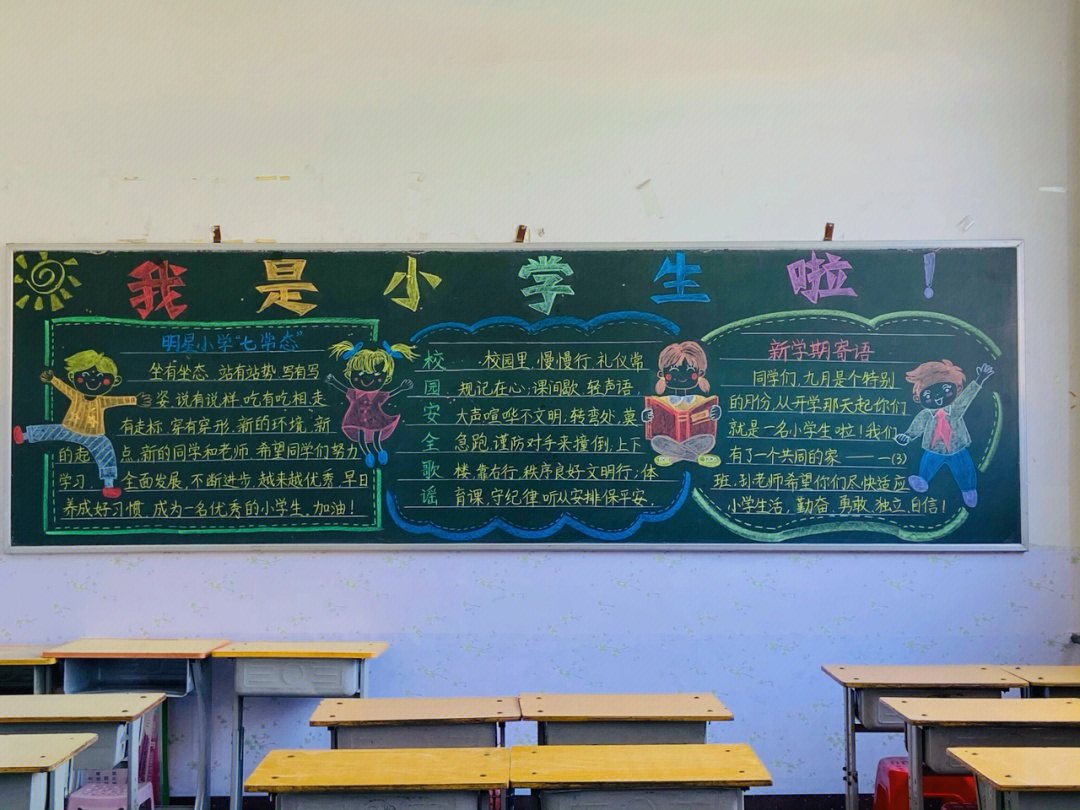 我是小学生啦!
明星小学"七常态"
坐有坐态、站有站势、写有写
姿、说有说样、吃有吃相、走
有走标、穿有穿形、新的环境、新
的起点、新的同学和老师、希望同学们努力
学习、全面发展、不断进步、越来越优秀、早日
养成好习惯、成为一名优秀的小学生、加油!
校园安全歌谣
校园里,慢慢行,礼仪常
规记在心;课间歇,轻声语
大声喧哗不文明;转弯处,莫
急跑,谨防对手来撞倒,上下
楼,靠右行,秩序良好文明行;体
育课,守纪律,听从安排保平安.
新学期寄语
同学们,九月是个特别
的月份,从开学那天起你们
就是一名小学生啦!我们
有了一个共同的家——一(3)
班,彭老师希望你们尽快适应
小学生活,勤奋、勇敢、独立、自信!